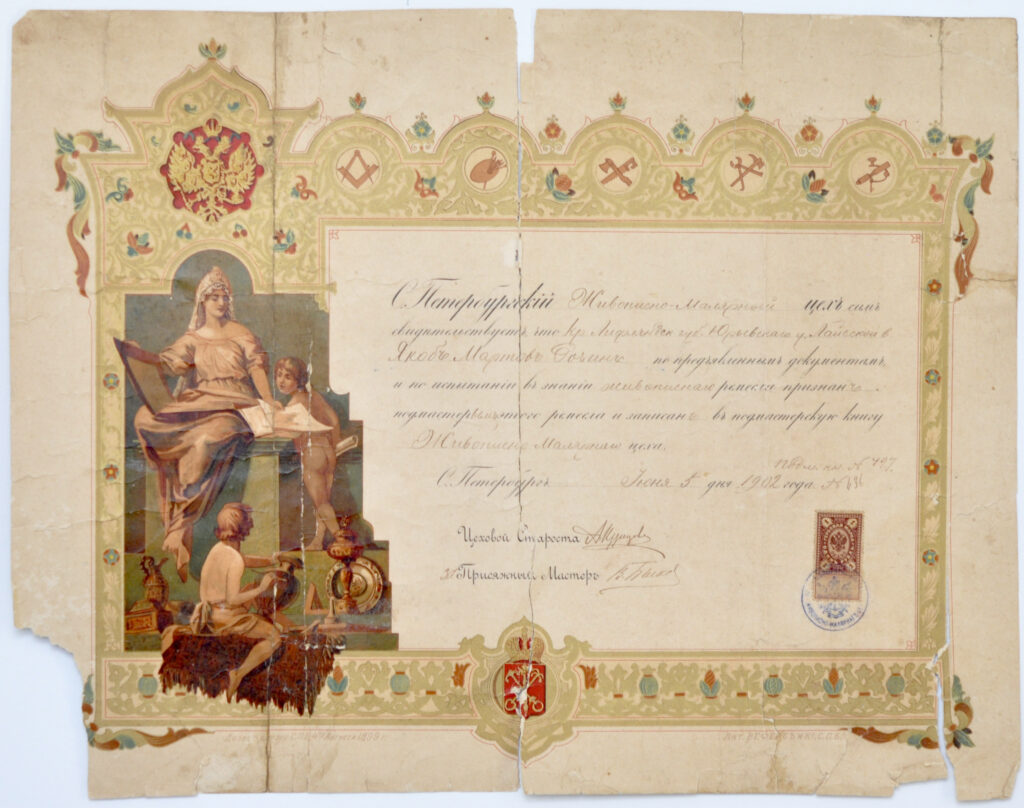 С.Петербургскій Живописно-Малярный цехъ симъ
свидѣтельствуетъ что кр. Лифляндск. губ. Юрьевскаго у. Лайской в.
Якобъ Мартовъ по предъявленнымъ документамъ
и по испытаніи въ знаніи живописнаго ремесла признанъ
подмастерьемъ этого ремесла и записанъ въ подмастерскую книгу
Живописно Малярнаго цеха.
№ 497.
С. Петербургъ Іюня 5 дня 1902 года
Цеховой Староста
Присяжный Мастеръ